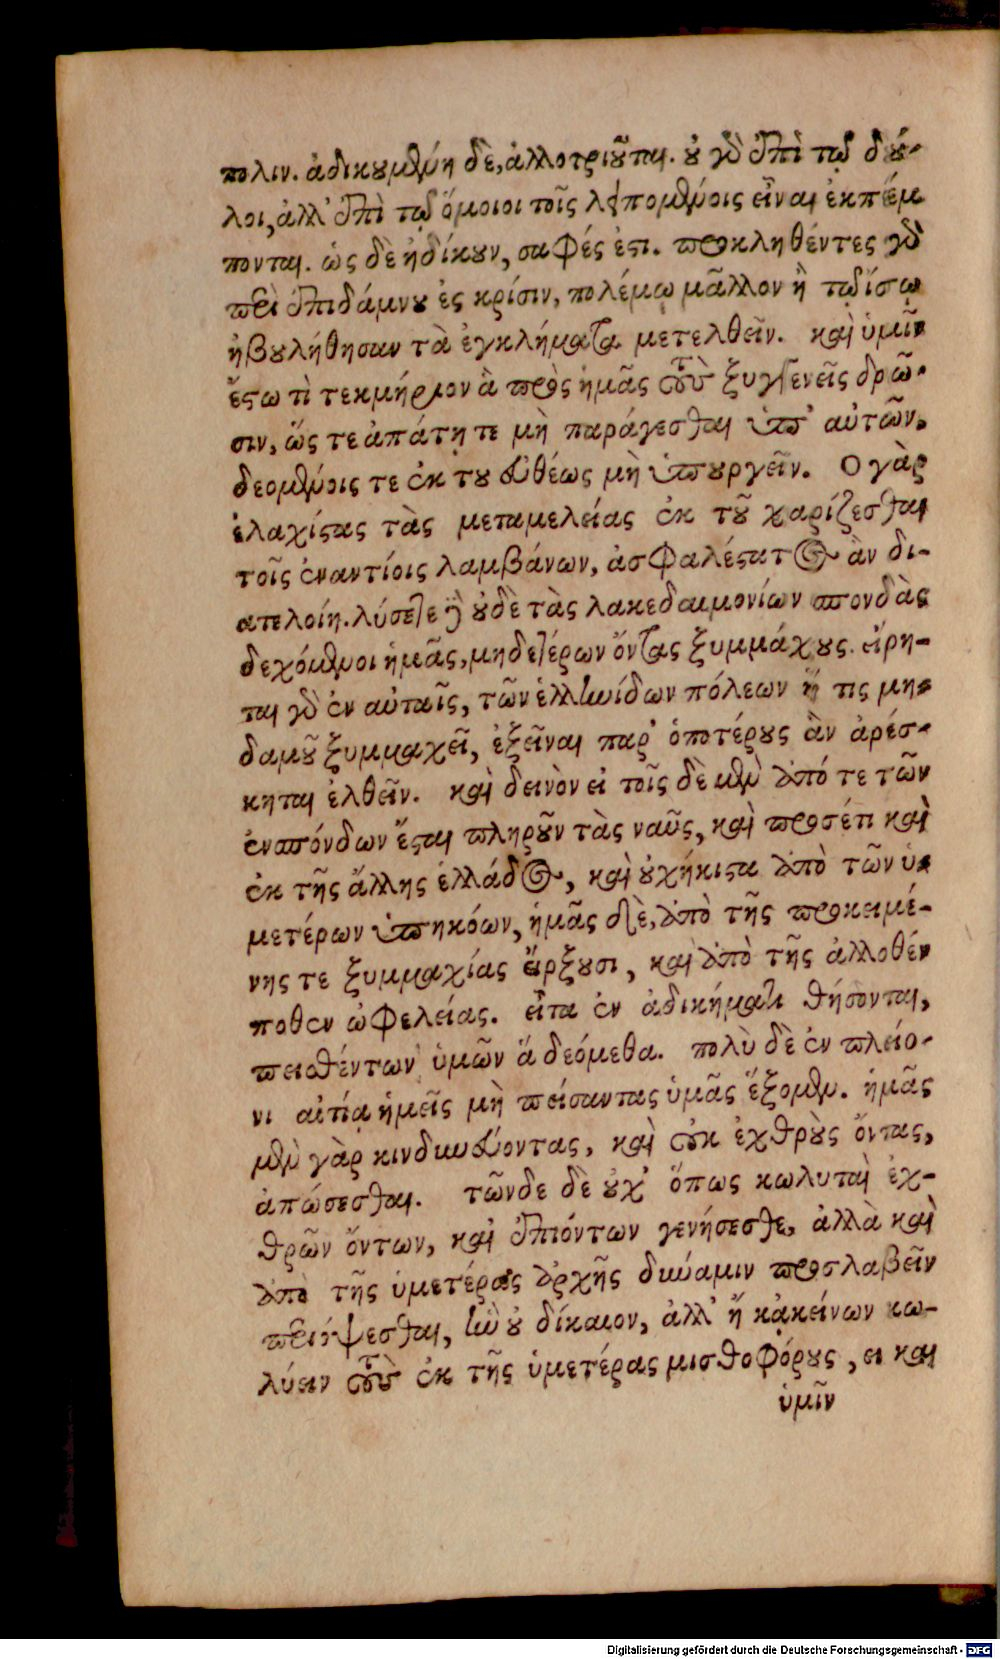 πολιν. ἀδικουμένη δὲ, ἀλλοτριοῦται. οὐ γὰρ ἐπὶ τῷ δοῦ-
λοι, ἀλλ' ἐπὶ τῷ ὅμοιοι τοῖς λειπομένοις εἶναι ἐκπέμ
πονται. ὡς δὲ ἠδίκουν, σαφές ἐστι. προκληθέντες γὰρ
περὶ ἐπιδάμνου ἐς κρίσιν, πολέμῳ μᾶλλον ἢ τῷ ἴσῳ
ἠβουλήθησαν τὰ ἐγκλήματα μετελθεῖν. καὶ ὑμῖν
ἔστω τὶ τεκμήριον ἃ πρὸς ἡμᾶς τοὺς ξυγγενεῖς δρῶ-
σιν, ὥς τε ἀπάτῃ τε μὴ παράγεσθαι ὑπ' αὐτῶν.
δεομένοις τε ἐκ του εὐθέως μὴ ὑπουργεῖν. Ὁ γὰρ
ἐλαχίστας τὰς μεταμελείας ἐκ τοῦ χαρίζεσθαι
τοῖς ἐναντίοις λαμβάνων, ἀσφαλέστατος ἂν δι-
ατελοίη. λύσετε δὲ οὐδὲ τὰς λακεδαιμονίων σπονδὰς
δεχόμενοι ἡμᾶς, μηδετέρων ὄντας ξυμμάχους. εἴρη-
ται γὰρ ἐν αὐταῖς, τῶν ἑλληνίδων πόλεων ἥ τις μη-
δαμοῦ ξυμμαχεῖ, ἐξεῖναι παρ' ὁποτέρους ἂν ἀρέσ-
κηται ἐλθεῖν. καὶ δεινὸν εἰ τοῖς δὲ μὲν ἀπό τε τῶν
ἐνσπόνδων ἔσται πληροῦν τὰς ναῦς, καὶ προσέτι καὶ
ἐκ τῆς ἄλλης ἑλλάδος, καὶ οὐχήκιστα ἀπὸ τῶν ὑ-
μετέρων ὑπηκόων, ἡμᾶς δὲ, ἀπὸ τῆς προκειμέ-
νης τε ξυμμαχίας εἴρξουσι, καὶ ἀπὸ τῆς ἀλλοθέν
ποθεν ὠφελείας. εἶτα ἐν ἀδικήματι θήσονται,
πεισθέντων ὑμῶν ἃ δεόμεθα. πολὺ δὲ ἐν πλείο-
νι αἰτίᾳ ἡμεῖς μὴ πείσαντας ὑμᾶς ἕξομεν. ἡμᾶς
μὲν γὰρ κινδυνεύοντας, καὶ οὐκ ἐχθροὺς ὄντας,
ἀπώσεσθαι. τῶνδε δὲ οὐχ' ὅπως κωλυταὶ ἐχ-
θρῶν ὄντων, καὶ ἐπιόντων γενήσεσθε, ἀλλὰ καὶ
ἀπὸ τῆς ὑμετέρας ἀρχῆς δύναμιν προσλαβεῖν
περιόψεσθαι, ἣν οὐ δίκαιον, ἀλλ' ἢ κᾀκείνων κω-
λύειν τοὺς ἐκ τῆς ὑμετέρας μισθοφόρους, ει και
ὑμῖν
Digitalisierung gefördert durch die Deutsche Forschungsgemeinschaft - DFG